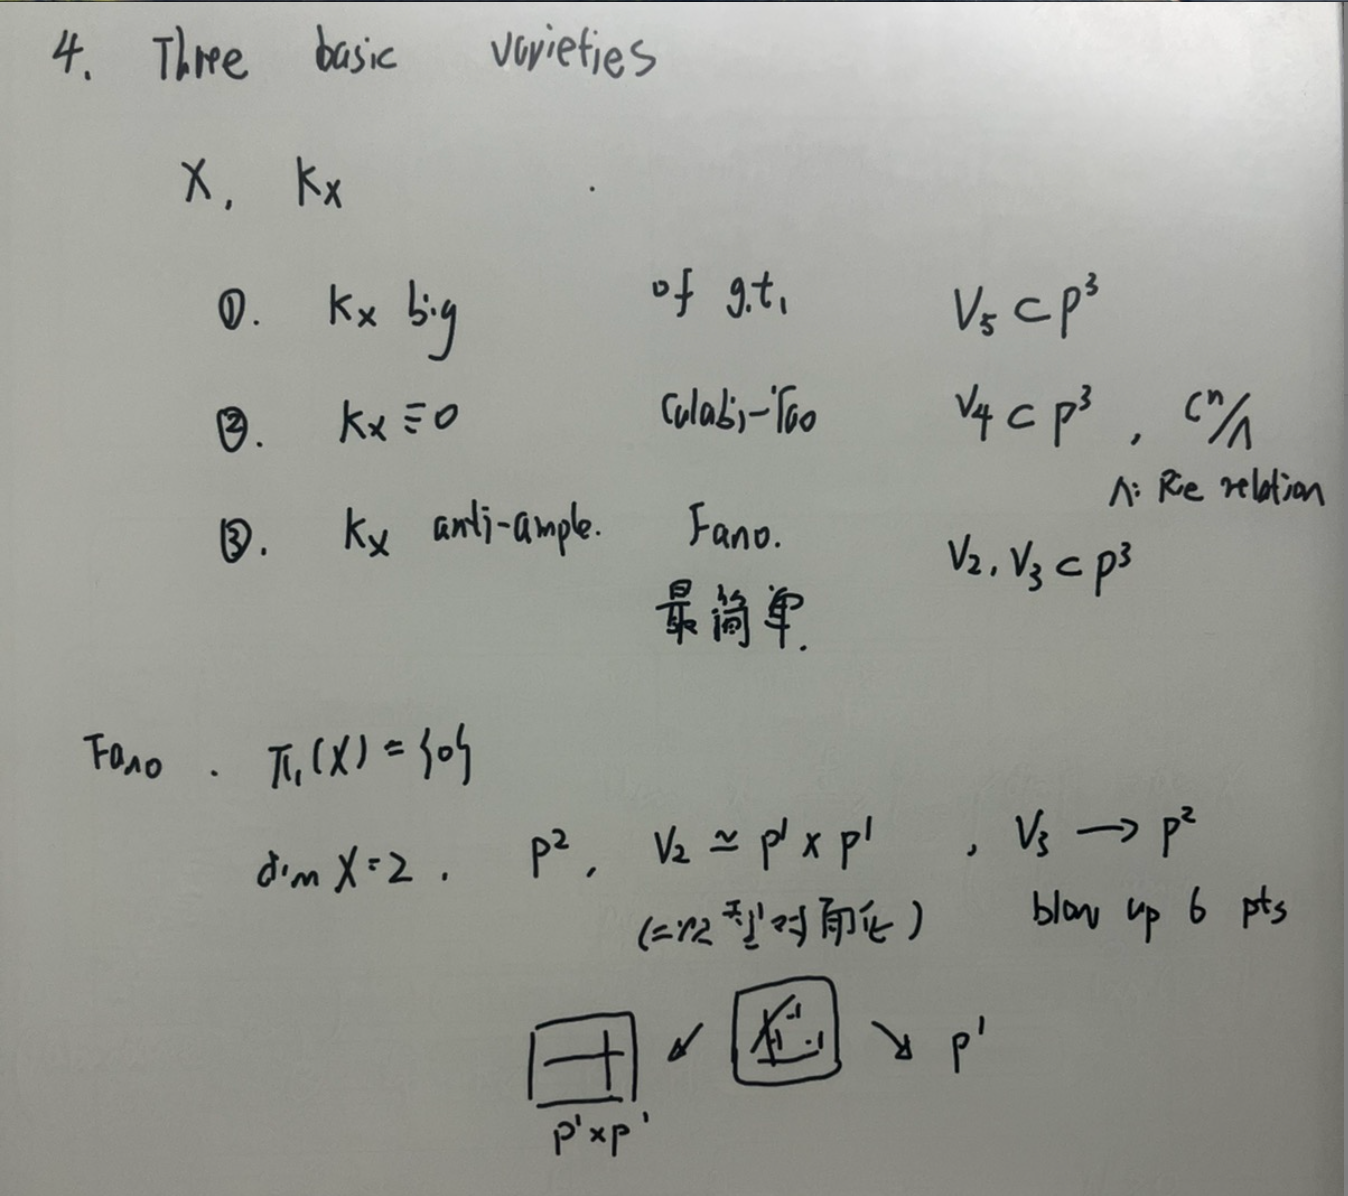 4. Three basic varieties
X, Kx
①. Kx big of g.t, V5 ⊂ P³
②. Kx ≡ 0 Calabi-Yao V4 ⊂ P³, Cⁿ/Λ
Λ: Rie relation
③. Kx anti-ample. Fano. V2, V3 ⊂ P³
最简单.
Fano. π₁(X) = {0}
dim X = 2. P², V2 ≃ P¹ × P¹, V3 → P²
(二次型对角化) blow up 6 pts
↙ -1 -1 -1 ↘ P¹
P¹×P¹